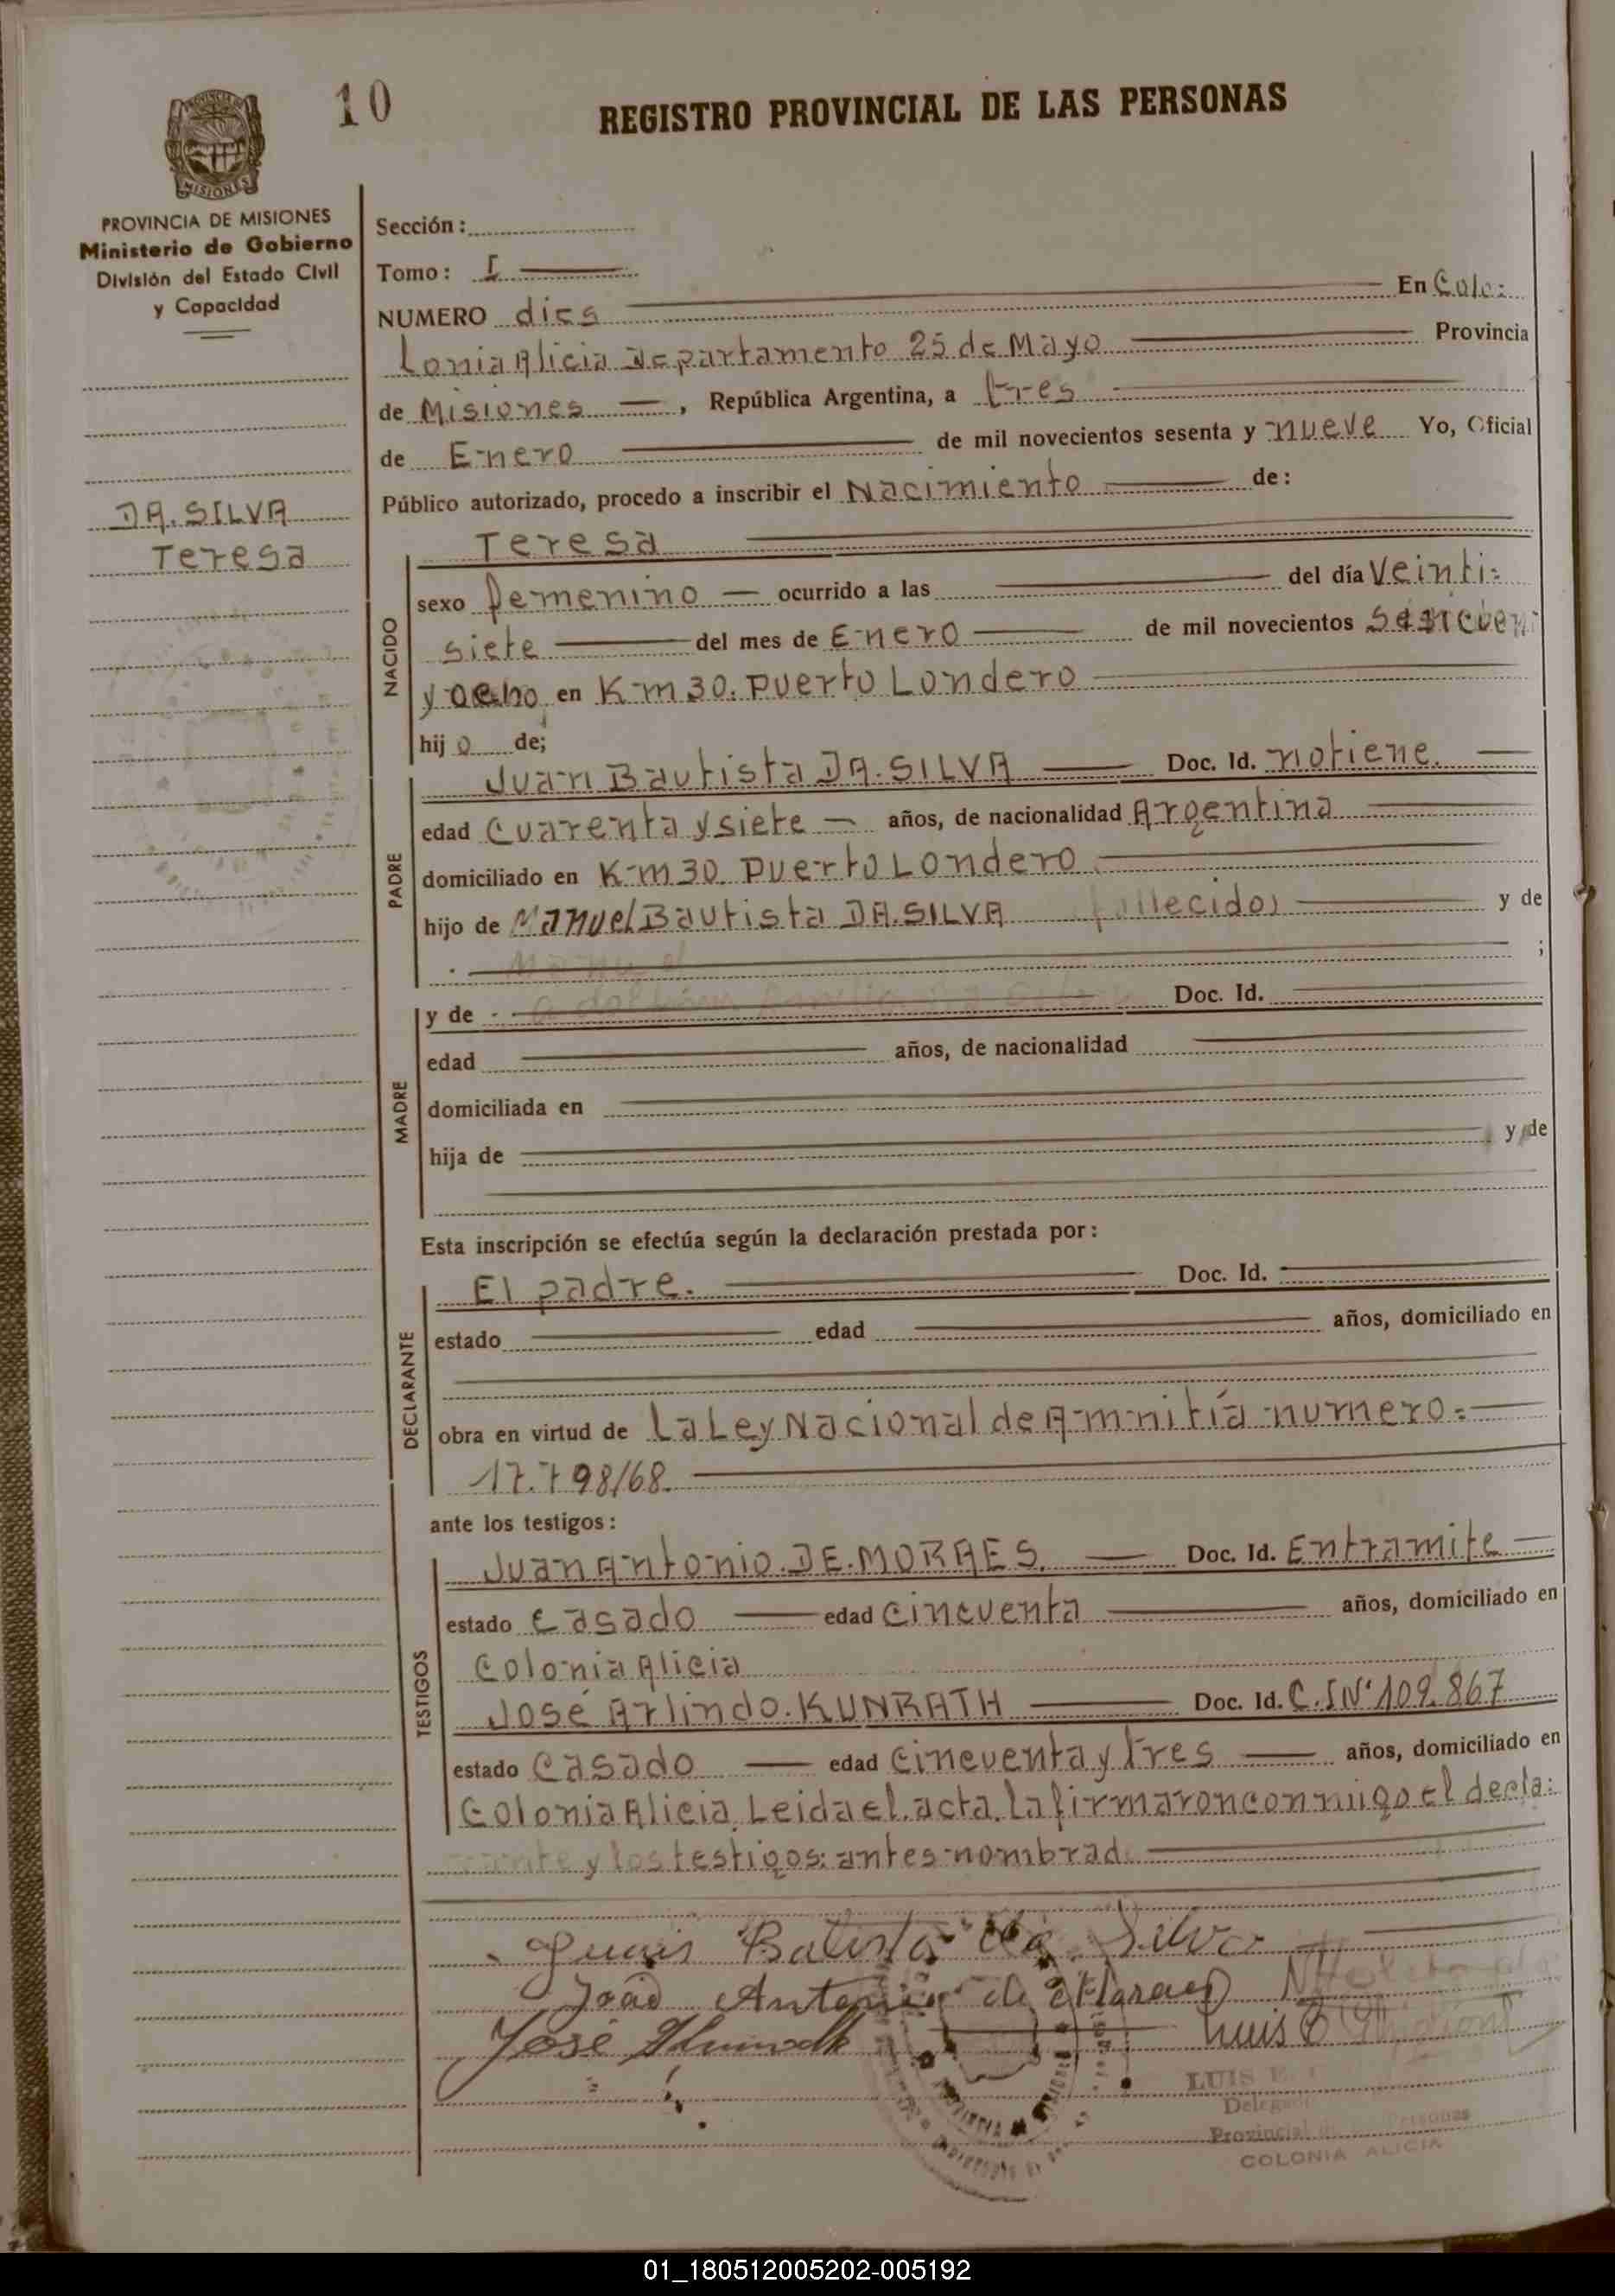 10
REGISTRO PROVINCIAL DE LAS PERSONAS
MISIONES
PROVINCIA DE MISIONES
Ministerio de Gobierno
División del Estado Civil
y Capacidad
DA. SILVA
Teresa
Sección:
Tomo: I
NUMERO dies En Colo:
Lonia Alicia Departamento 25 de Mayo Provincia
de Misiones, República Argentina, a tres
de Enero de mil novecientos sesenta y nueve Yo, Oficial
Público autorizado, procedo a inscribir el Nacimiento de:
NACIDO
Teresa
sexo femenino ocurrido a las del día Veinti=
siete del mes de Enero de mil novecientos
y ocho en Km 30. Puerto Londero
hijo de;
PADRE
Juan Bautista DA. SILVA Doc. Id. notiene.
edad Cuarenta y siete años, de nacionalidad Argentina
domiciliado en Km 30. Puerto Londero
hijo de Manuel Bautista DA. SILVA fallecido) y de
;
MADRE
y de Doc. Id.
edad años, de nacionalidad
domiciliada en
hija de y de
Esta inscripción se efectúa según la declaración prestada por:
DECLARANTE
El padre. Doc. Id.
estado edad años, domiciliado en
obra en virtud de La Ley Nacional de Amnitía numero=
17.798/68.
ante los testigos:
TESTIGOS
Juan Antonio. DE. MORAES. Doc. Id. Entramite
estado Casado edad Cincuenta años, domiciliado en
Colonia Alicia
José Arlindo. KUNRATH Doc. Id. C.I Nº 109.867
estado Casado edad Cincuenta y tres años, domiciliado en
Colonia Alicia. Leida el. acta. la firmaron con migo el decla:
rante y los testigos: antes nombrad
Batista da Silva
João Antonio de Moraes
José
Luis E
LUIS E.
Provincial de las Personas
COLONIA ALICIA
01_180512005202-005192